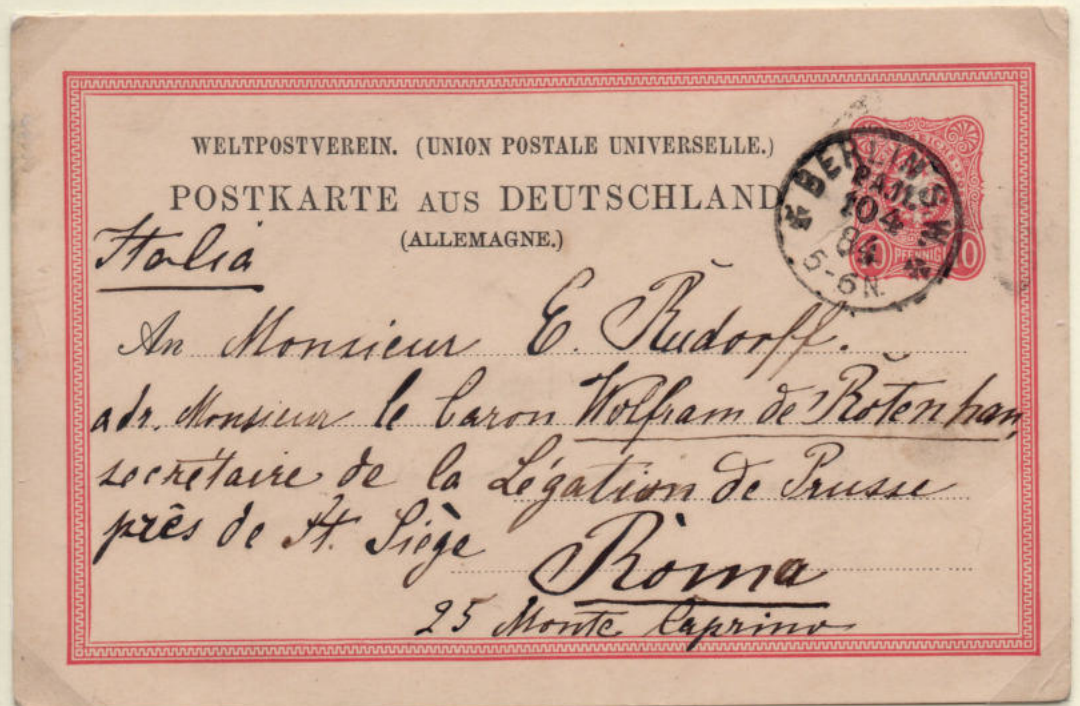 WELTPOSTVEREIN. (UNION POSTALE UNIVERSELLE.)
POSTKARTE AUS DEUTSCHLAND
(ALLEMAGNE.)
BERLIN S.W.
P.A.11.
10 4
84
5-6N.
10 PFENNIG 10
Italia
An Monsieur E. Rudorff.
adr. Monsieur le baron Wolfram de Rotenhan,
secrétaire de la Légation de Prusse
près de St. Siège
Roma
25 Monte Caprino